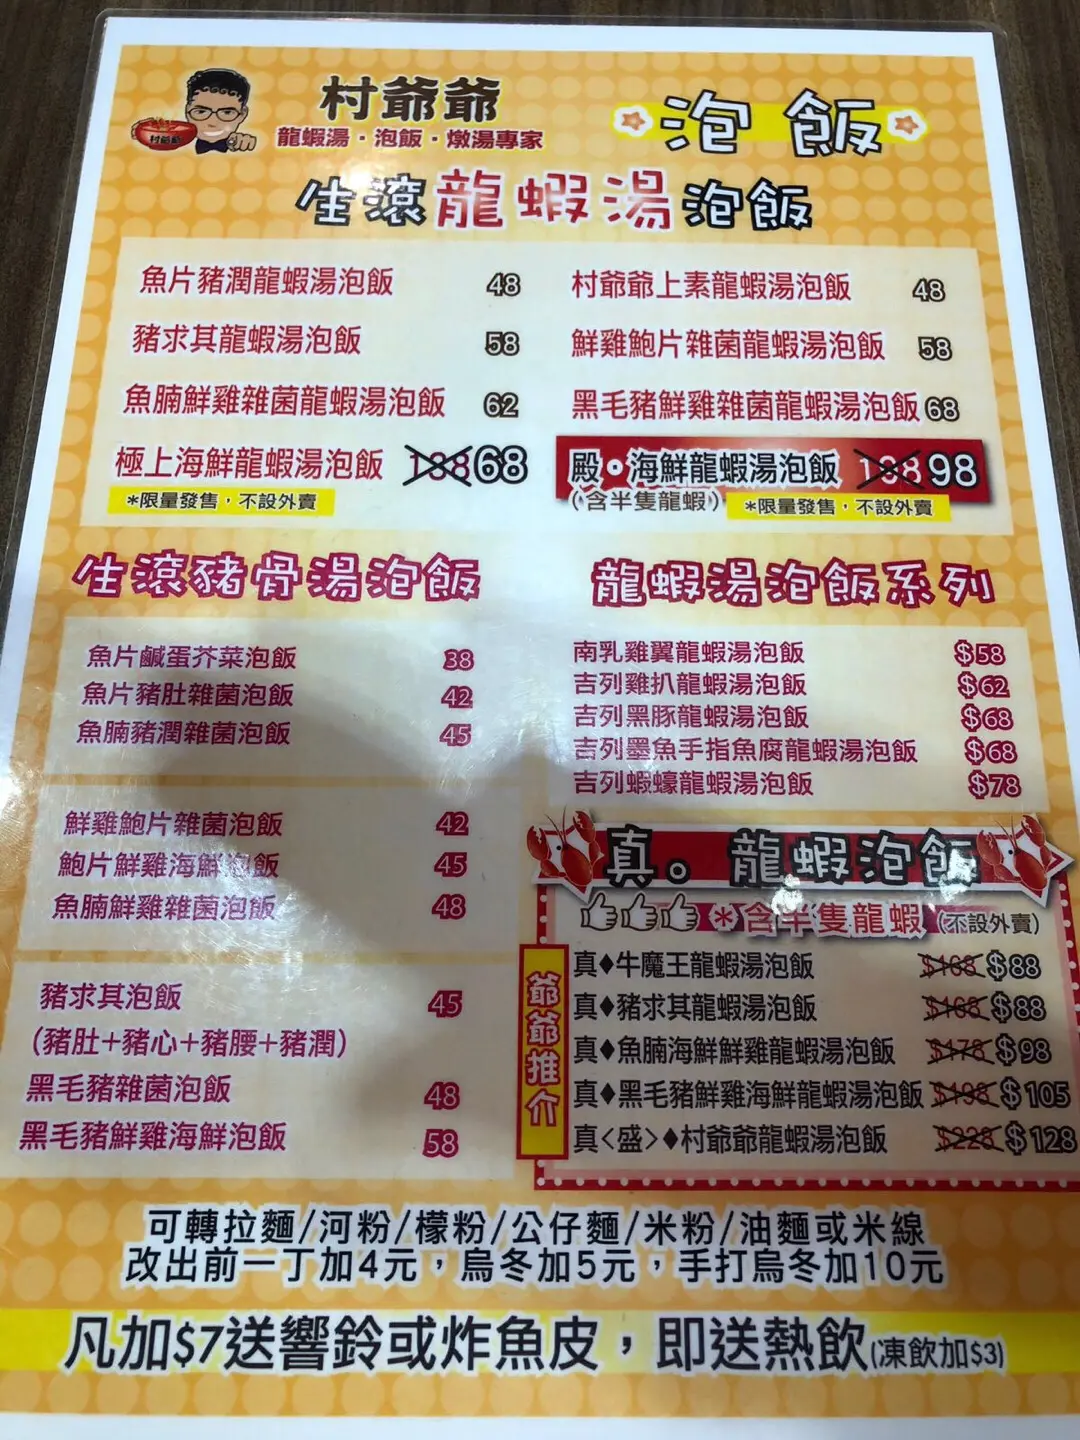 村爺爺
村爺爺
龍蝦湯·泡飯·燉湯專家
泡飯
生滾龍蝦湯泡飯
魚片豬潤龍蝦湯泡飯 48
豬求其龍蝦湯泡飯 58
魚腩鮮雞雜菌龍蝦湯泡飯 62
極上海鮮龍蝦湯泡飯 68
*限量發售，不設外賣
村爺爺上素龍蝦湯泡飯 48
鮮雞鮑片雜菌龍蝦湯泡飯 58
黑毛豬鮮雞雜菌龍蝦湯泡飯 68
殿·海鮮龍蝦湯泡飯 98
(含半隻龍蝦) *限量發售，不設外賣
生滾豬骨湯泡飯
魚片鹹蛋芥菜泡飯 38
魚片豬肚雜菌泡飯 42
魚腩豬潤雜菌泡飯 45
鮮雞鮑片雜菌泡飯 42
鮑片鮮雞海鮮泡飯 45
魚腩鮮雞雜菌泡飯 48
豬求其泡飯 45
(豬肚+豬心+豬腰+豬潤)
黑毛豬雜菌泡飯 48
黑毛豬鮮雞海鮮泡飯 58
龍蝦湯泡飯系列
南乳雞翼龍蝦湯泡飯 $58
吉列雞扒龍蝦湯泡飯 $62
吉列黑豚龍蝦湯泡飯 $68
吉列墨魚手指魚腐龍蝦湯泡飯 $68
吉列蝦蠔龍蝦湯泡飯 $78
真。龍蝦泡飯
*含半隻龍蝦 (不設外賣)
爺爺推介
真♦牛魔王龍蝦湯泡飯 $168 $88
真♦豬求其龍蝦湯泡飯 $168 $88
真♦魚腩海鮮鮮雞龍蝦湯泡飯 $178 $98
真♦黑毛豬鮮雞海鮮龍蝦湯泡飯 $198 $105
真<盛>♦村爺爺龍蝦湯泡飯 $228 $128
可轉拉麵/河粉/檬粉/公仔麵/米粉/油麵或米線
改出前一丁加4元，烏冬加5元，手打烏冬加10元
凡加$7送響鈴或炸魚皮，即送熱飲(凍飲加$3)